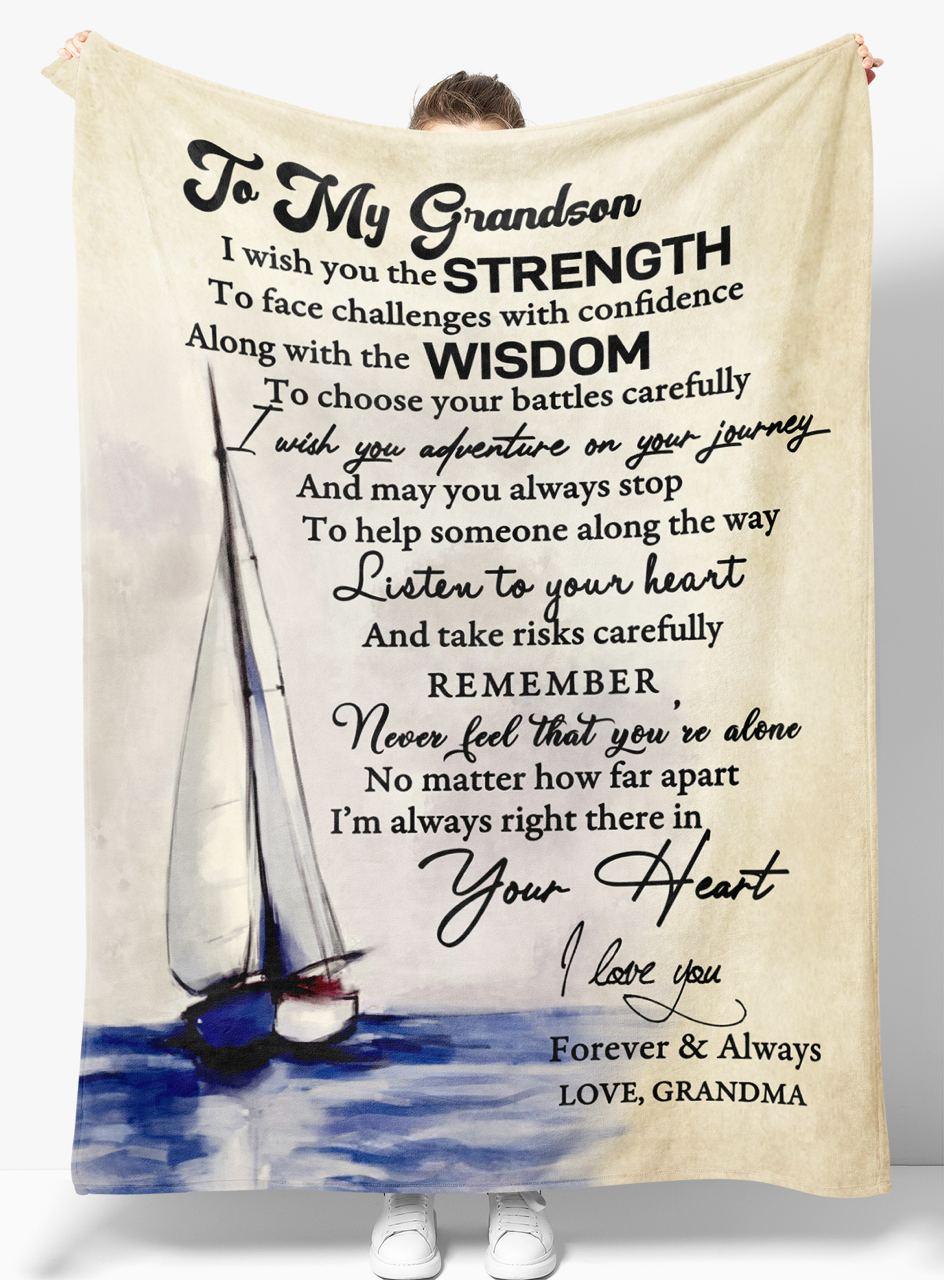 To My Grandson
I wish you the STRENGTH
To face challenges with confidence
Along with the WISDOM
To choose your battles carefully
I wish you adventure on your journey
And may you always stop
To help someone along the way
Listen to your heart
And take risks carefully
REMEMBER
Never feel that you're alone
No matter how far apart
I'm always right there in
Your Heart
I love you
Forever & Always
LOVE, GRANDMA